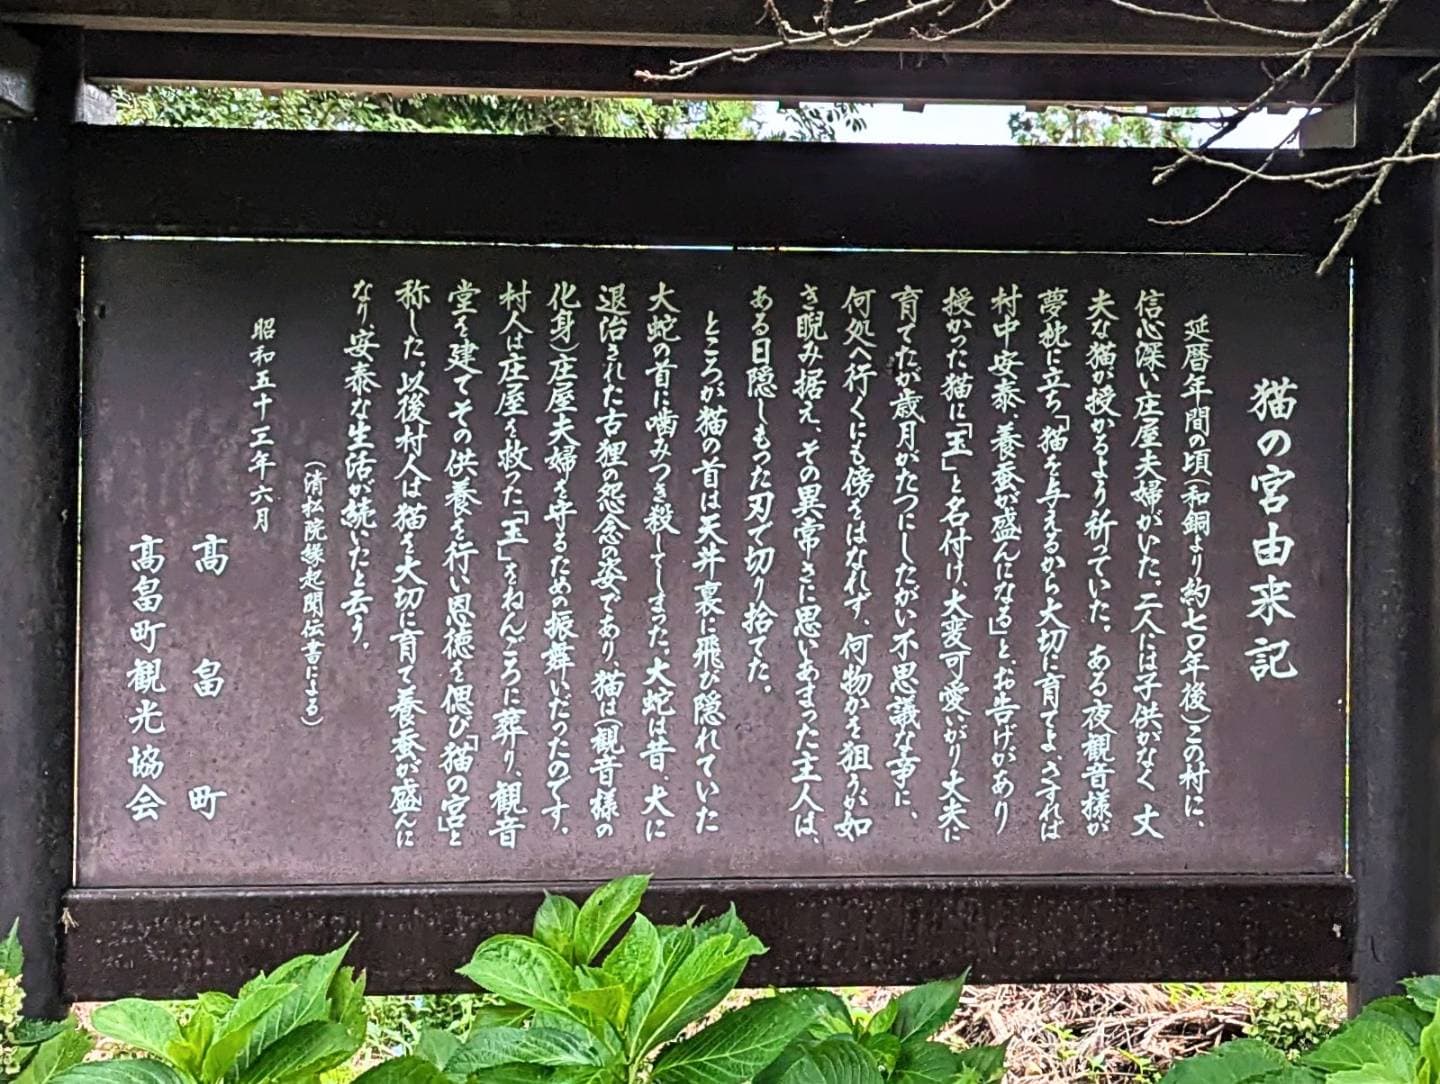 猫の宮由来記
延暦年間の頃(和銅より約七〇年後)この村に、
信心深い庄屋夫婦がいた。二人には子供がなく丈
夫な猫が授かるよう祈っていた。ある夜観音様が
夢枕に立ち「猫を与えるから大切に育てよ、さすれば
村中安泰、養蚕が盛んになる」と、お告げがあり
授かった猫に「玉」と名付け、大変可愛いがり丈夫に
育てたが歳月がたつにしたがい不思議な事に、
何処へ行くにも傍をはなれず、何物かを狙うが如
き睨み据え、その異常さに思いあまった主人は、
ある日隠しもった刃で切り捨てた。
ところが猫の首は天井裏に飛び隠れていた
大蛇の首に噛みつき殺してしまった、大蛇は昔、犬に
退治された古狸の怨念の姿であり、猫は(観音様の
化身)庄屋夫婦を守るための振舞いだったのです。
村人は庄屋を救った「玉」をねんごろに葬り、観音
堂を建てその供養を行い恩徳を偲び「猫の宮」と
称した。以後村人は猫を大切に育て養蚕が盛んに
なり安泰な生活が続いたと云う。
(清松院縁起関伝書による)
昭和五十三年六月
高畠町
高畠町観光協会